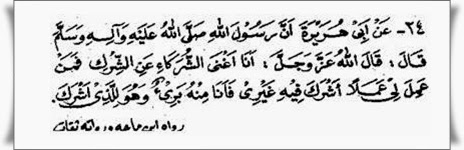 ٣٤- عَنْ اَبِیْ هُرَیْرَةَ اَنَّ رَسُوْلَ اللهِ صَلَّی اللهُ عَلَیْهِ وَآلِهٖ وَسَلَّمَ
قَالَ: قَالَ اللهُ عَزَّ وَجَلَّ: اَنَا اَغْنَی الشُّرَكَاءِ عَنِ الشِّرْكِ فَمَنْ
عَمِلَ لِیْ عَمَلًا اَشْرَكَ فِیْهِ غَیْرِیْ فَاَنَا مِنْهُ بَرِیْءٌ وَهُوَ لِلَّذِیْ اَشْرَكَ.
رواه ابن ماجه ورواته ثقات